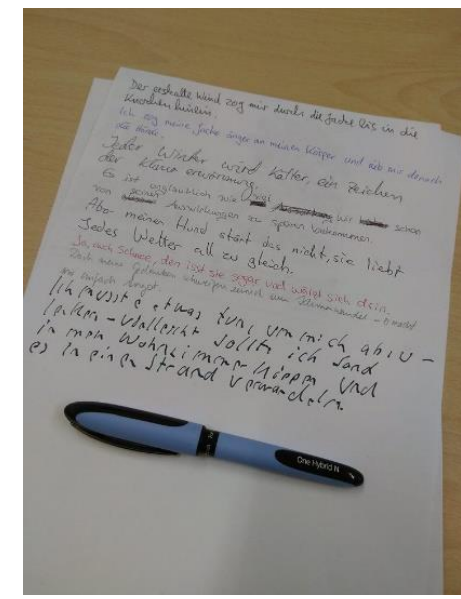 Der eiskalte Wind zog mir durch die Jacke bis in die
Knochen hinein.
Ich zog meine Jacke enger an meinen Körper und rieb mir danach
die Hände.
Jeder Winter wird kälter, ein Zeichen
der Klimaerwärmung.
Es ist unglaublich wie viel wir schon
von Auswirkungen zu spüren bekommen.
Aber meinen Hund stört das nicht, sie liebt
Jedes Wetter all zu gleich.
Ja, auch Schnee, den isst sie sogar und wälzt sich drin.
Doch meine Gedanken schweifen zurück zum Klimawandel - Er macht
mir einfach Angst.
Ich musste etwas tun, um mich abzu-
lenken - Vielleicht sollte ich Sand
in mein Wohnzimmer kippen und
es in einen Strand verwandeln.
One Hybrid N